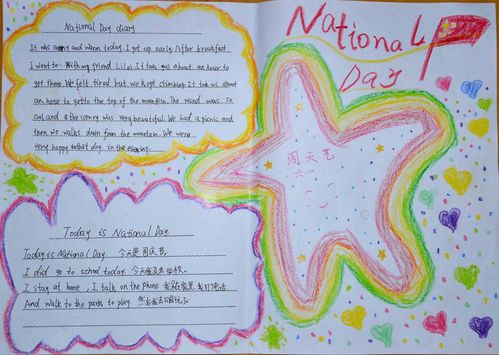 National Day diary
It was sunny and warm today. I got up early. After breakfast
I went to with my friend Lilei. It took gus about an hour to
get there. We felt tired but we kept climbing. It took us about
an hose to getto the top of the mountain. The wind was so
cool and the was very beautiful. We had a picnic and
then we walks down from the mountain. We were
very happy today in the evening.
National
Day
周天艺
六一
Today is National Day
Today is National Day 今天是国庆节.
I did go to school today 今天我没去学校.
I stay at home, I talk on the phone 我在家里我打电话
And walk to the park to play 然去公园玩了